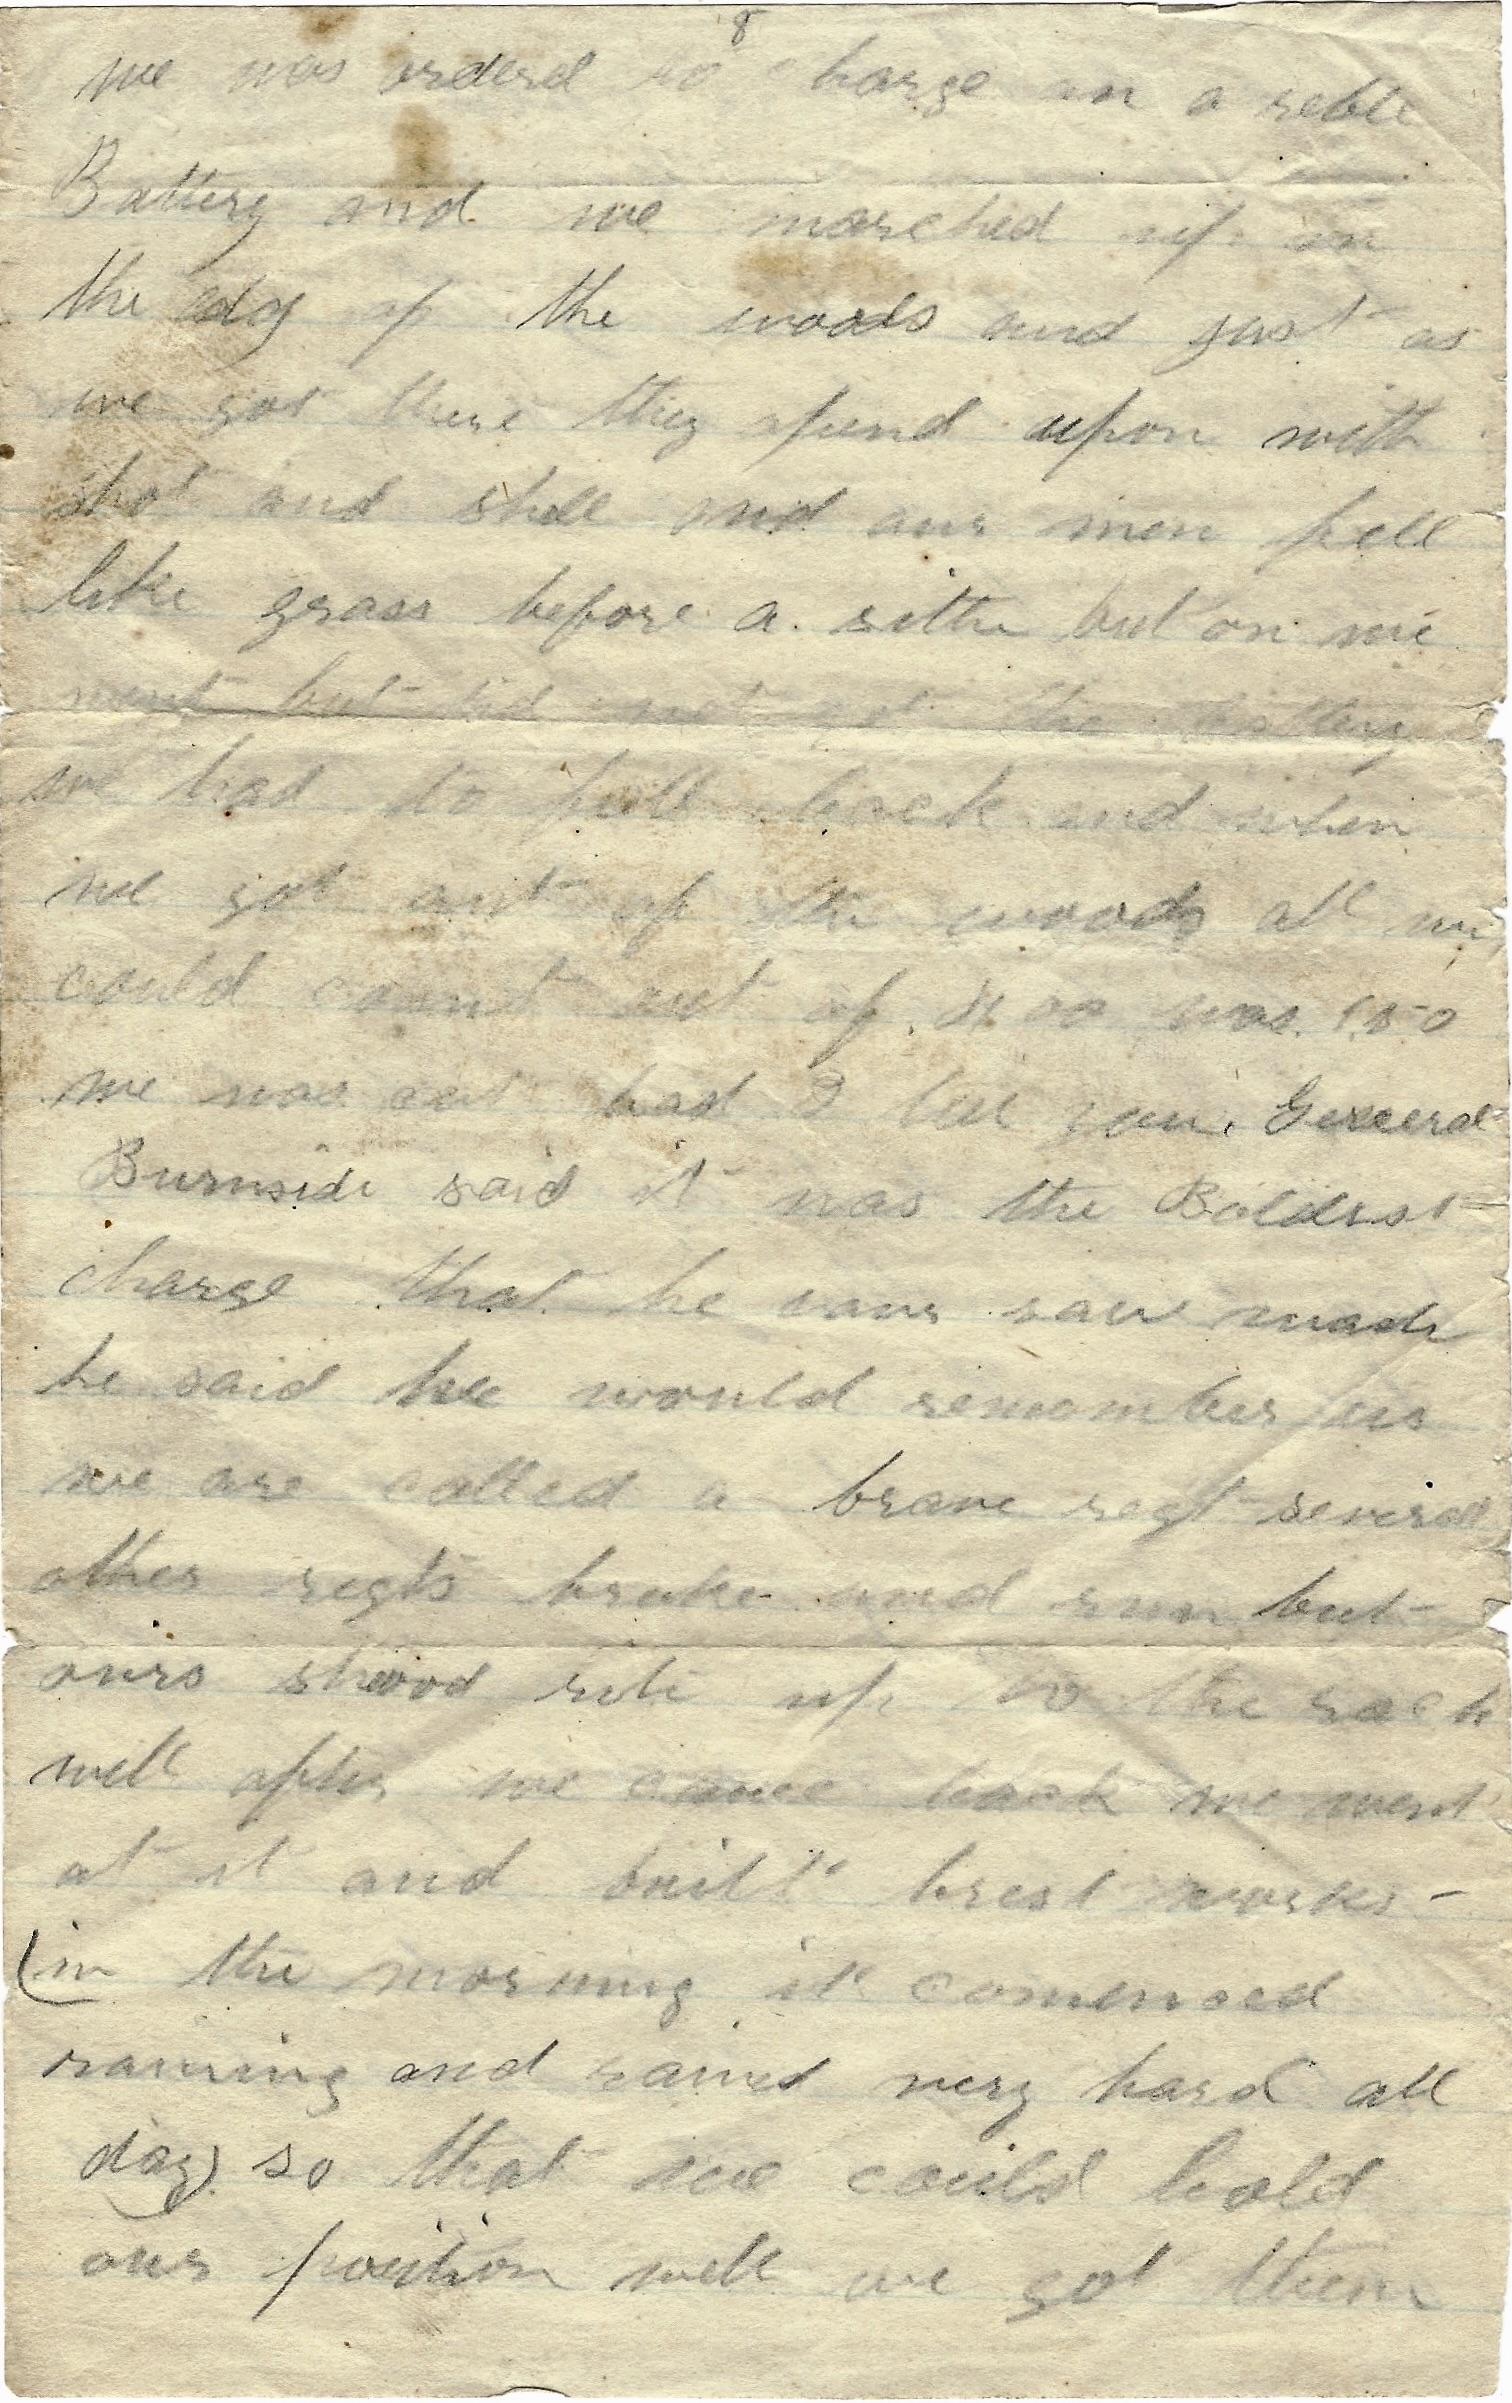 8
we was orderd to charge on a reble
Battery and we marched up in
the edg of the woods and just as
we got there they opend upon with
shot and shell and our men fell
like grass before a sithe but on we
went but did not get the battery
we had to fall back and when
we got out of the woods all we
could count out of 400 was 150
we was cut bad I tell you. General
Burnside said it was the Boldest
charge that he ever saw made
he said he would remember us
we are called a brave regt severall
other regts brake and run but
ours stood rite up to the rack
well after we came back we went
at it and built brest works -
(in the morning it comenced
raining and rained very hard all
day) so that we could hold
our position well we got them